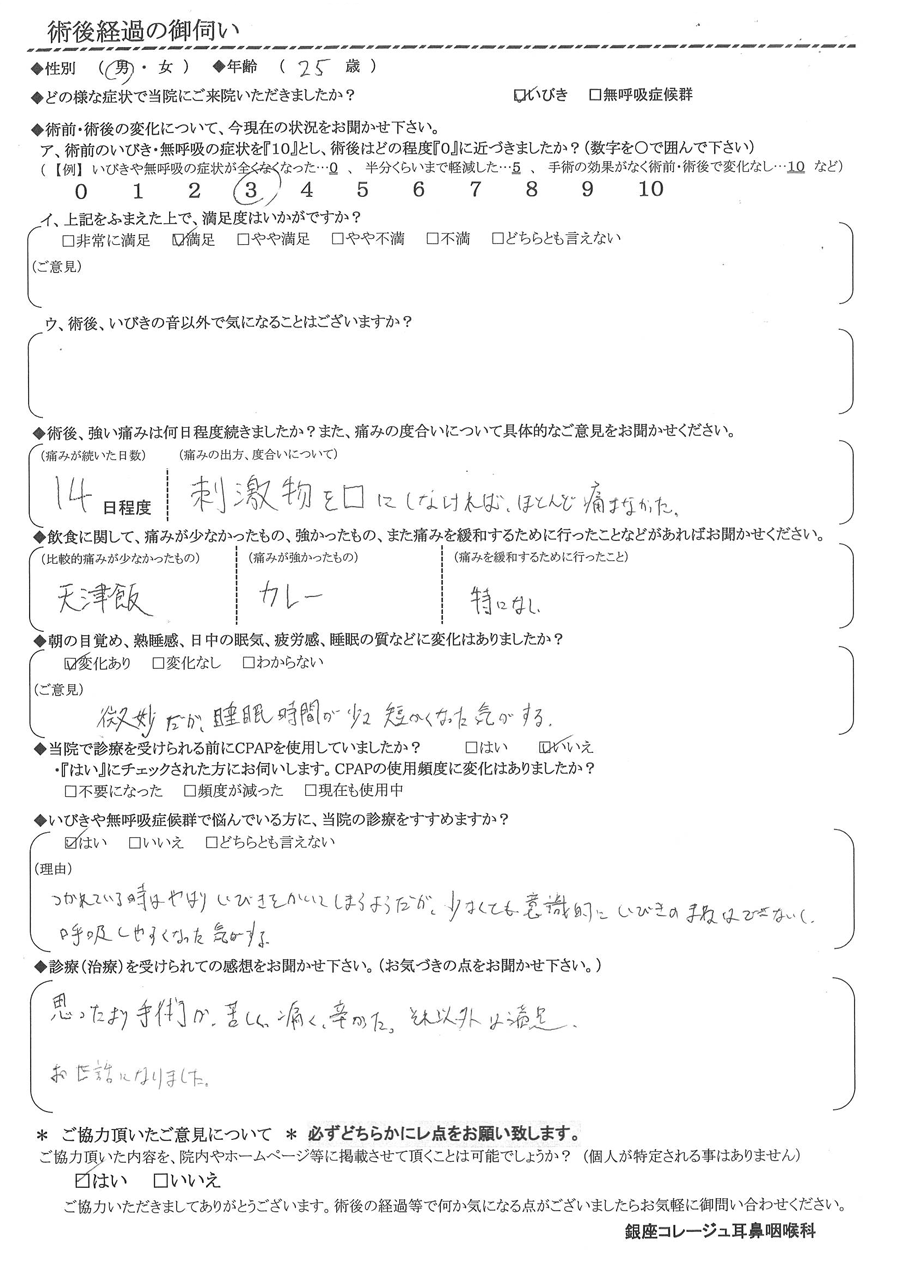 術後経過の御伺い
◆性別 ( 男 ・ 女 ) ◆年齢 ( 25 歳 )
◆どの様な症状で当院にご来院いただきましたか? ☑いびき □無呼吸症候群
◆術前・術後の変化について、今現在の状況をお聞かせ下さい。
ア、術前のいびき・無呼吸の症状を『10』とし、術後はどの程度『0』に近づきましたか?(数字を〇で囲んで下さい)
(【例】いびきや無呼吸の症状が全くなくなった…0 、 半分くらいまで軽減した…5 、 手術の効果がなく術前・術後で変化なし…10 など)
0 1 2 3 4 5 6 7 8 9 10
イ、上記をふまえた上で、満足度はいかがですか?
□非常に満足 ☑満足 □やや満足 □やや不満 □不満 □どちらとも言えない
(ご意見)
ウ、術後、いびきの音以外で気になることはございますか?
◆術後、強い痛みは何日程度続きましたか?また、痛みの度合いについて具体的なご意見をお聞かせください。
(痛みが続いた日数) (痛みの出方、度合いについて)
14 日程度 刺激物を口にしなければ、ほとんど痛まなかた。
◆飲食に関して、痛みが少なかったもの、強かったもの、また痛みを緩和するために行ったことなどがあればお聞かせください。
(比較的痛みが少なかったもの) (痛みが強かったもの) (痛みを緩和するために行ったこと)
天津飯 カレー 特になし
◆朝の目覚め、熟睡感、日中の眠気、疲労感、睡眠の質などに変化はありましたか?
☑変化あり □変化なし □わからない
(ご意見)
微妙だが、睡眠時間が少し短かくなった気がする。
◆当院で診療を受けられる前にCPAPを使用していましたか? □はい ☑いいえ
・『はい』にチェックされた方にお伺いします。CPAPの使用頻度に変化はありましたか?
□不要になった □頻度が減った □現在も使用中
◆いびきや無呼吸症候群で悩んでいる方に、当院の診療をすすめますか?
☑はい □いいえ □どちらとも言えない
(理由)
つかれている時はやはり いびきをかいてしまうようだが、少なくても意識的にいびきのまねはできないし、
呼吸しやすくなった気がする。
◆診療(治療)を受けられての感想をお聞かせ下さい。(お気づきの点をお聞かせ下さい。)
思ったより手術が、苦しく、痛く、辛かた。それ以外は満足.
お世話になりました。
＊ ご協力頂いたご意見について ＊ 必ずどちらかにレ点をお願い致します。
ご協力頂いた内容を、院内やホームページ等に掲載させて頂くことは可能でしょうか? (個人が特定される事はありません)
☑はい □いいえ
ご協力いただきましてありがとうございます。術後の経過等で何か気になる点がございましたらお気軽に御問い合わせください。
銀座コレージュ耳鼻咽喉科